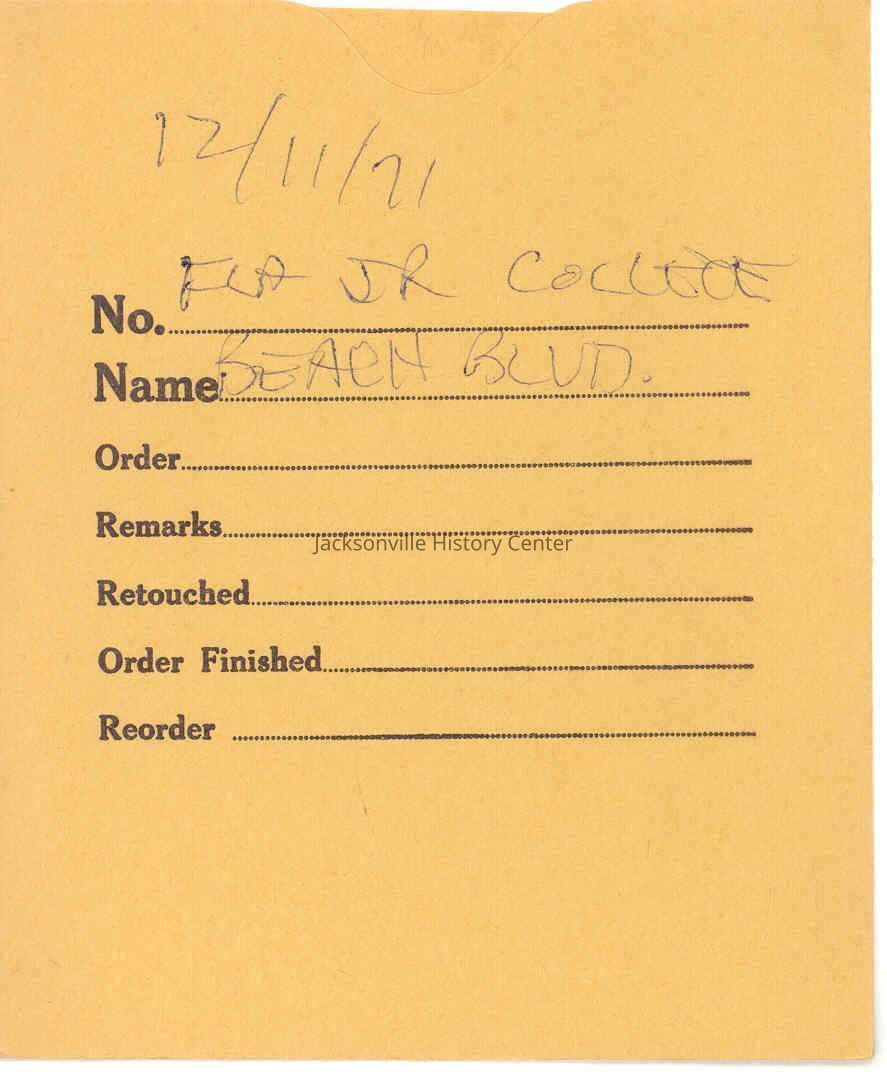 12/11/71
FLA JR COLLEGE
No.
BEACH BLVD.
Name
Order
Remarks
Jacksonville History Center
Retouched
Order Finished
Reorder